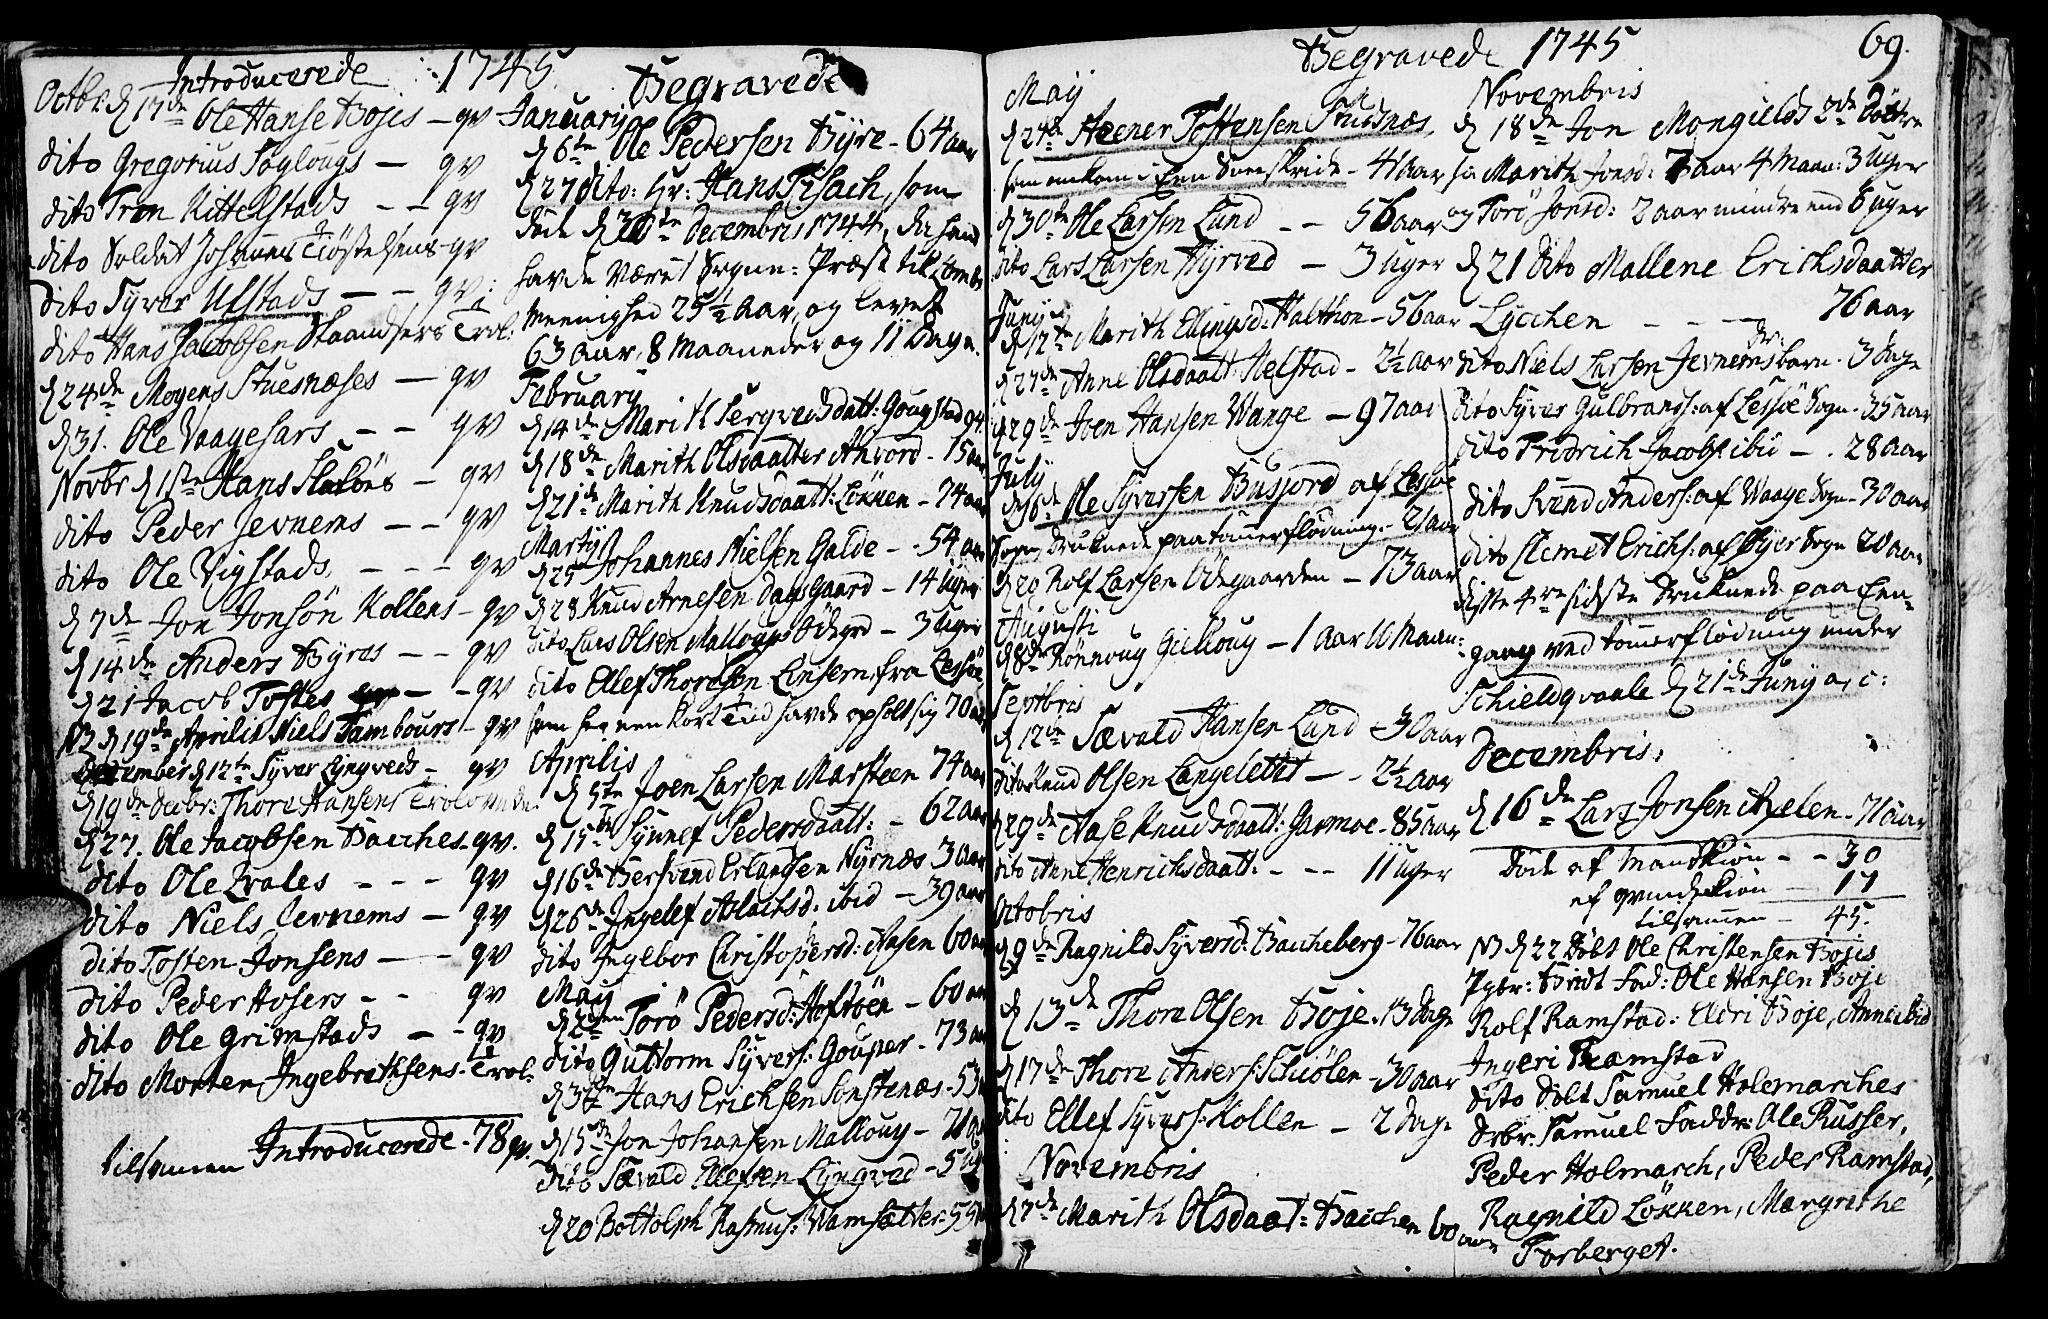 Introducerede 1745
Octbr: d 17de Ole Hanse Bojes – qv
dito Gregorius Soglougs – qv
dito Tron Kittelstads – – qv
dito Soldat Johannes Tiøstelsens – qv
dito Syver Ufstads – – – qv:
dito Hans Jacobsen Skaandsers Trol:
d 24de Mogens Stuesnæses – qv
d 31. Ole Vaagesars – – qv
Novbr d 1ste Hans – qv
dito Peder Jevnems – – qv
dito Ole Vigstads, – – – qv
d 7de Jon Jonsøn Kollens – qv
d 14de Anders Byres – – qv
d 21 Jacob Tostes – – qv
NB d 19de Aprilis Niels Tambours – qv
December d 12te Syver Lyngveds – qv
d 19de Decbr: Thore Hansens Trolovede.
d 27. Ole Jacobsen Bacches – qv.
dito Ole Qvales – – – qv
dito Niels Jevnems – qv
dito Tosten Jonsens – – qv
dito Peder Hosers – – qv
dito Ole Grimstads – – qv
dito Morten Ingebrethsens Trol.
tilsamen Introducerede – 78 qv.
Begravede
January
d 6te Ole Pedersen Byre – 64 aar
d 27 dito: Hr: Hans Pisach, som
døde d 30te Decembris 1744, da hand
havde været Sogne: Præst til Lomb
Meenighed 25½ Aar, og levet
63 aar, 8 Maaneder og 11 Dage.
February
d 14de Marith Sergvedsdatt: Gougstad 94
d 18de Marith Olsdaatter Anvord – 15 aar
d 21de Marith Knudsdaatt: Løkken – 74 aar
Martij
d 25 Johannes Nielsen Galde – 54 aar
d 28 Knud Arnesen Dagsgaard – 14 Uger
dito Lars Olsen Mallougs Ødegrd – 3 Uger
dito Ellef Thoresøn Einsem, fra Lessøe
som her een kort Tiid havde opholt sig 70 aar
Aprilis
d 5te Joen Larsen Marsteen 74 aar
d 15de Synnef Pedersdaatt: – 62 aar
d 16de Bersvend Erlandsen Nyrnæs 3 aar
d 26de Ingelef Aslachsd. ibid – 39 aar
dito Ingebor Christophersd: Aasen 60 aar
May
d 2den Torö Pedersd: Hoftøen – 60 aar
dito Guttorm Syvers: Gouper – 73 aar
d 3die Hans Erichsen Sonstenæs – 53
d 15de Jon Johansen Mallouy – 71 aar
dito Sævald Ellefsen Lyngved – 5
d 20 Bottolph Rasmus: Wamsætter – 55
Begravede 1745 69.
May
d 24de Steener Tostensen Stuesnæs,
som omkom i Een Sneeskride – 41 aar
d 30te Ole Larsen Lund – – 56 aar
dito Lars Larsen Hyrved – 3 Uger
Juny
d 12te Marith Ellingsd: Halthon – 56 aar
d 27de Anne Olsdaatt: Helstad – 2½ aar
d 29de Joen Hansen Wange – 97 aar
July
d 16de Ole Syversen Busjord af Lessøe
Sogn, druknede paa tømmerflødning – 21 aar
d 20 Rolf Larsen Ødegaarden – 73 aar
Augusti
d 8de Rønnoug Gielloug – 1 aar 10 Maan:
Septbris
d 12de Sævald Hansen Lund – 30 aar
dito Knud Olsen Langeletet – – 2½ aar
d 29de Aase Knudsdaatt: Garmoe – 85 aar
dito Anne Henrichsdaatt: – – – 11 uger
Octobris
d 9de Ragnild Syversd: Baccheberg – 76 aar
d 13de Thore Olsen Boje – 13 dage
d 17de Thore Anders: Schiølen – 30 aar
dito Ellef Syvers: Kollen – 2 Dage
Novembris
d 7de Marith Olsdaat: Bacchen 60 aar
Novembris
d 18de Jon Mongields 2de Døttre
sc. Marith Jonsd: 7 aar 4 Maan: 3 Uger
og Torö Jonsd: 2 aar mindre end 6 uger
d 21 dito Mallene Erichsdaatter
Lycchen – – – – 76 aar
dito Niels Larsen Jevnems dr: barn – 3 dage
dito Syver Gulbrands: af Lessøe Sogn – 35 aar
dito Fridrich Jacobs: ibid – . 28 aar
dito Svend Anders: af Waage Sogn – 30 aar
dito Clemet Erichs: af Øyer Sogn 20 aar
disse 4re sidste druknede paa Een-
gang ved tømerflødning under
Schieldqvaale d 21de Juny a, c:
Decembris:
d 16de Lars Jonsen Axelen – 71 aar
Døde af Mandkiøn – – 30
af qvindekiøn – 17
tilsamen – 45.
NB d 22 Døbt Ole Christensen Bojes
Pgbr: Bridt Fad: Ole Hansen Boje
Rolf Ramstad: Eldri Boje, Anne ibid
Ingeri Ramstad
dito døbt Samuel Holemarches
Drbr. Samuel Faddr: Ole Russer,
Peder Holmarch, Peder Ramstad,
Ragnild Løkken, Margrethe
Forberget.